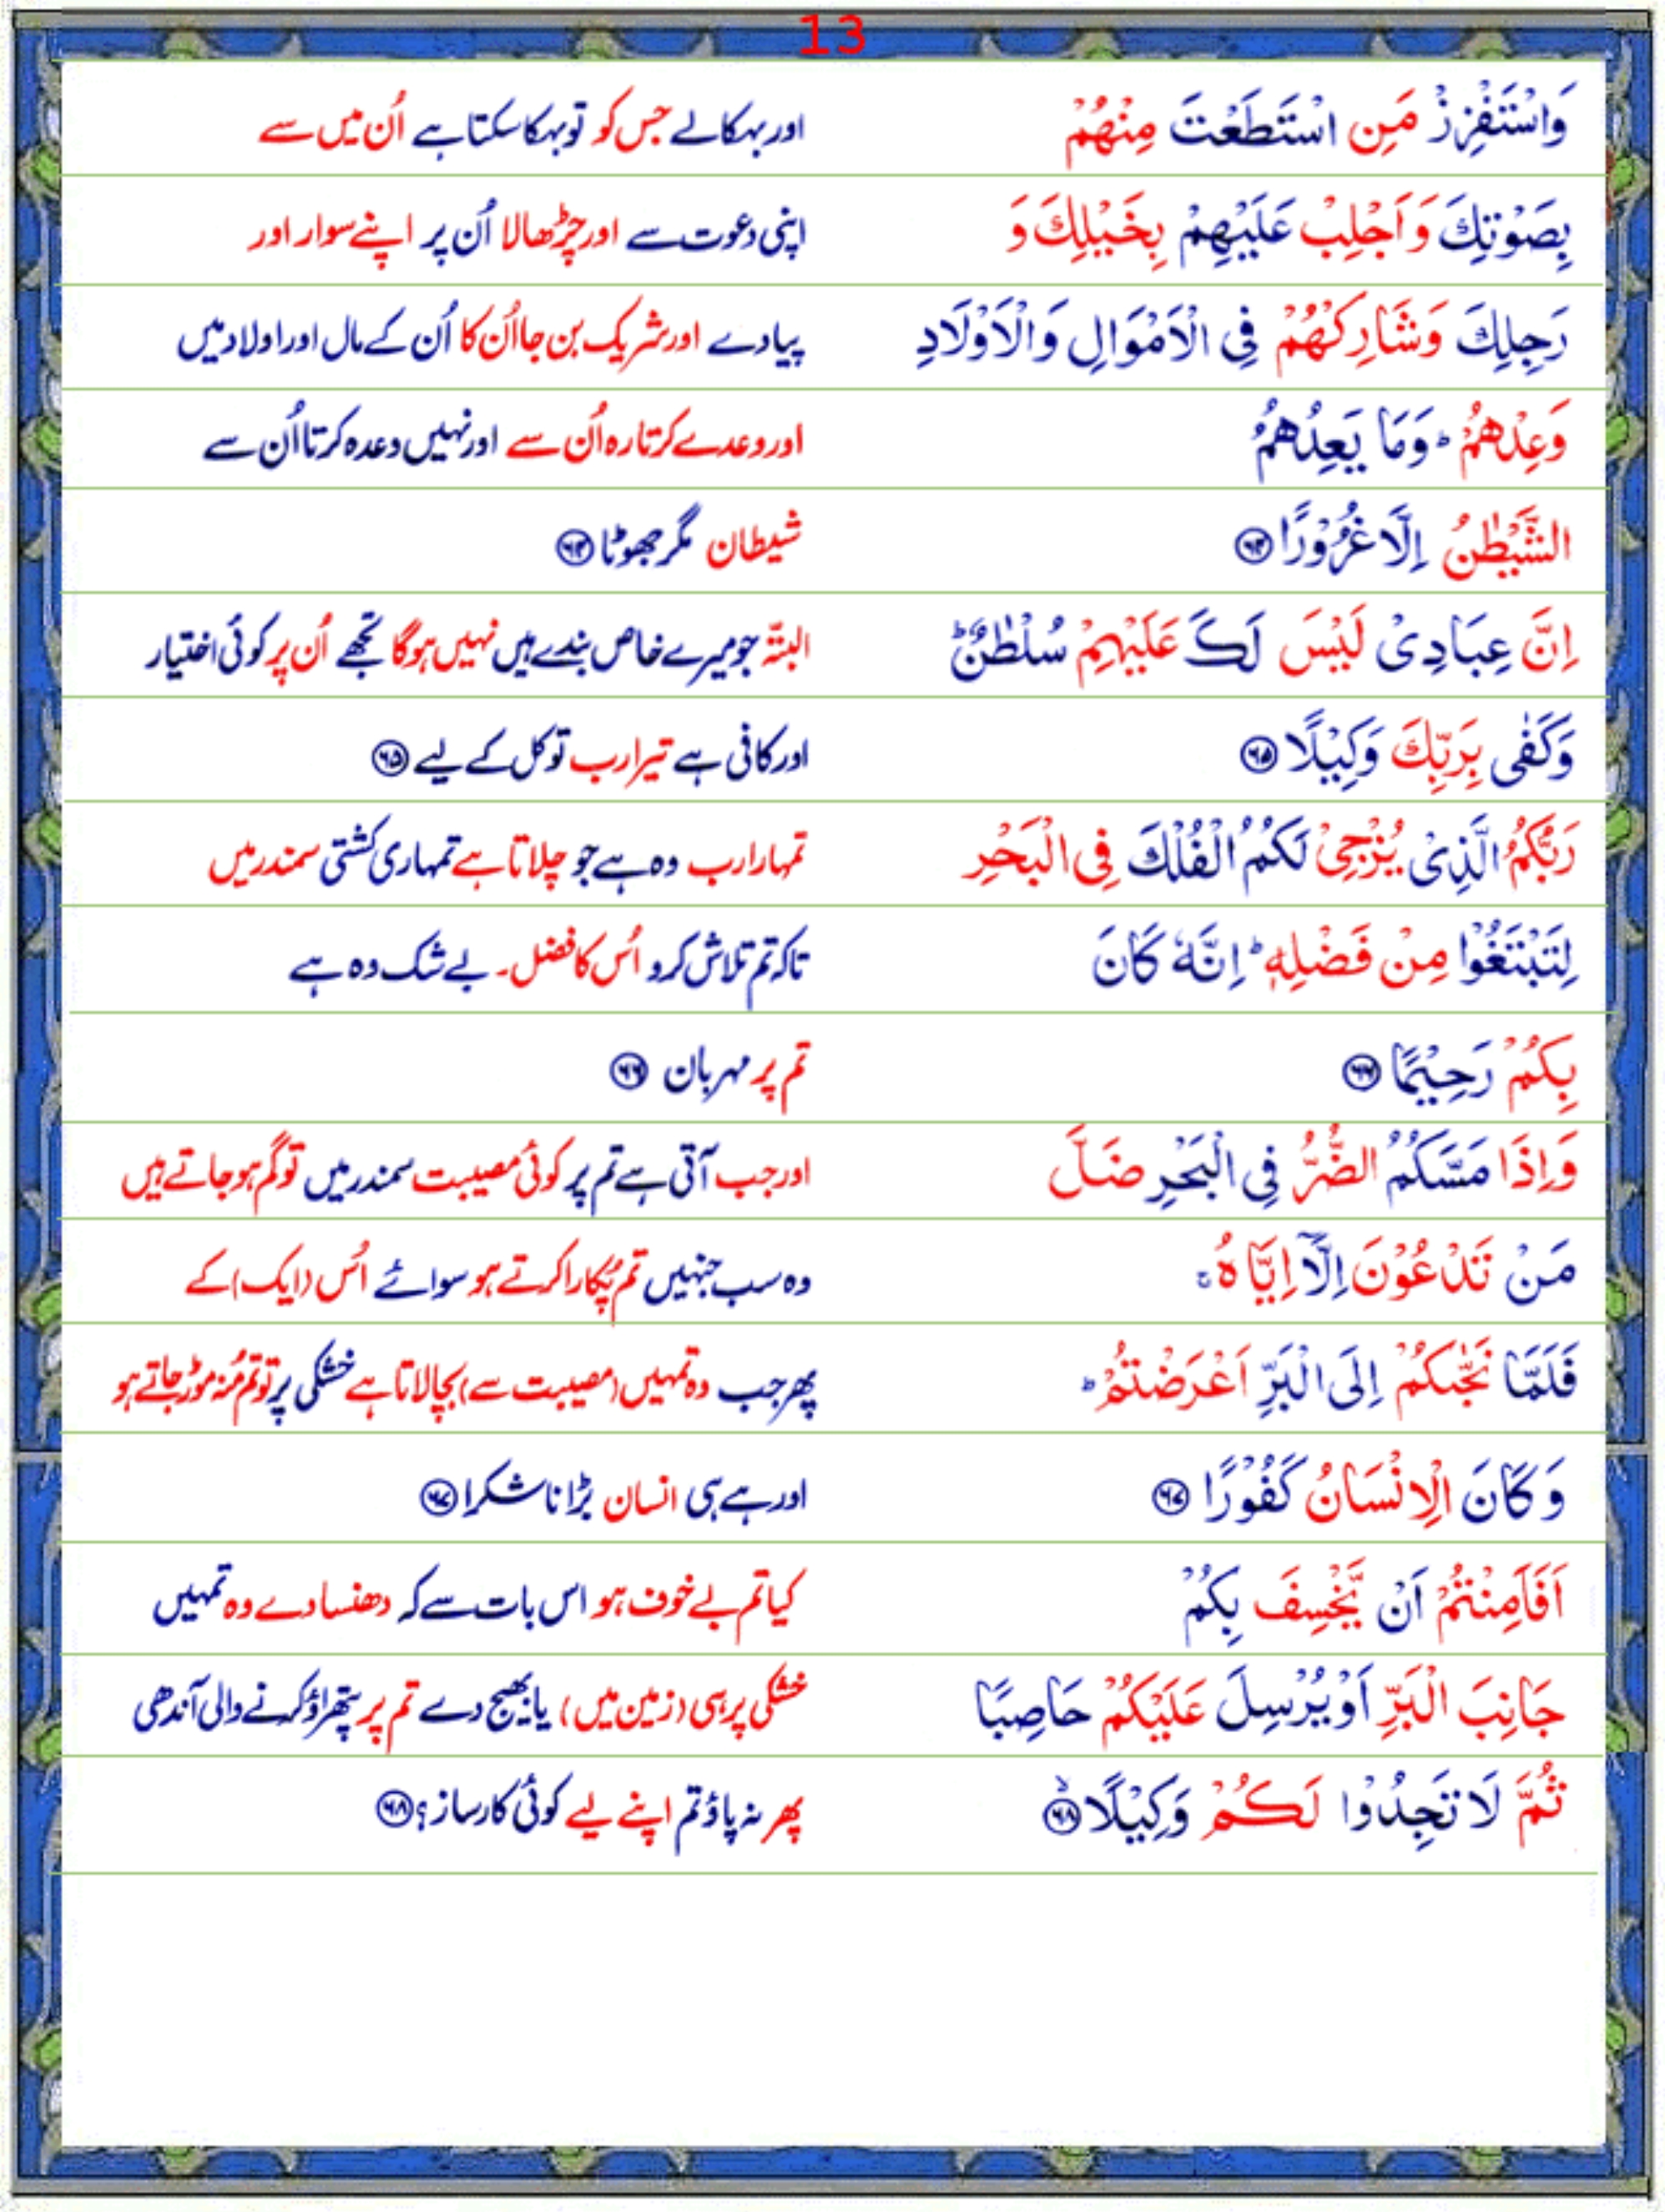 13
وَاسْتَفْزِزْ مَنِ اسْتَطَعْتَ مِنْهُمْ اور بہکالے جس کو تو بہکا سکتا ہے اُن میں سے
بِصَوْتِكَ وَ اَجْلِبْ عَلَيْهِمْ بِخَيْلِكَ وَ اپنی دعوت سے اور چڑھا لا اُن پر اپنے سوار اور
رَجِلِكَ وَشَارِكْهُمْ فِي الْاَمْوَالِ وَالْاَوْلَادِ پیادے اور شریک بن جا اُن کا اُن کے مال اور اولاد میں
وَعِدْهُمْ ؕ وَمَا يَعِدُهُمُ اور وعدے کرتا رہ اُن سے اور نہیں وعدہ کرتا اُن سے
الشَّيْطٰنُ اِلَّا غُرُوْرًا ۶۴ شیطان مگر جھوٹا ۶۴
اِنَّ عِبَادِىْ لَيْسَ لَكَ عَلَيْهِمْ سُلْطٰنٌ ؕ البتّہ جو میرے خاص بندے ہیں نہیں ہو گا تجھے اُن پر کوئی اختیار
وَكَفٰى بِرَبِّكَ وَكِيْلًا ۶۵ اور کافی ہے تیرا رب توکل کے لیے ۶۵
رَبُّكُمُ الَّذِىْ يُزْجِىْ لَكُمُ الْفُلْكَ فِى الْبَحْرِ تمہارا رب وہ ہے جو چلاتا ہے تمہاری کشتی سمندر میں
لِتَبْتَغُوْا مِنْ فَضْلِهٖ ؕ اِنَّهٗ كَانَ تاکہ تم تلاش کرو اُس کا فضل۔ بے شک وہ ہے
بِكُمْ رَحِيْمًا ۶۶ تم پر مہربان ۶۶
وَاِذَا مَسَّكُمُ الضُّرُّ فِى الْبَحْرِ ضَلَّ اور جب آتی ہے تم پر کوئی مصیبت سمندر میں تو گم ہو جاتے ہیں
مَنْ تَدْعُوْنَ اِلَّاۤ اِيَّاهُ ۚ وہ سب جنہیں تم پُکارا کرتے ہو سوائے اُس (ایک) کے
فَلَمَّا نَجّٰٮكُمْ اِلَى الْبَرِّ اَعْرَضْتُمْ ؕ پھر جب وہ تمہیں (مصیبت سے) بچا لاتا ہے خشکی پر تو تم مُنہ موڑ جاتے ہو
وَ كَانَ الْاِنْسَانُ كَفُوْرًا ۶۷ اور ہے ہی انسان بڑا ناشکرا ۶۷
اَفَاَمِنْتُمْ اَنْ يَّخْسِفَ بِكُمْ کیا تم بے خوف ہو اس بات سے کہ دھنسا دے وہ تمہیں
جَانِبَ الْبَرِّ اَوْ يُرْسِلَ عَلَيْكُمْ حَاصِبًا خشکی پر ہی (زمین میں) یا بھیج دے تم پر پتھراؤ کرنے والی آندھی
ثُمَّ لَا تَجِدُوْا لَكُمْ وَكِيْلًا ۙ ۶۸ پھر نہ پاؤ تم اپنے لیے کوئی کارساز؟ ۶۸